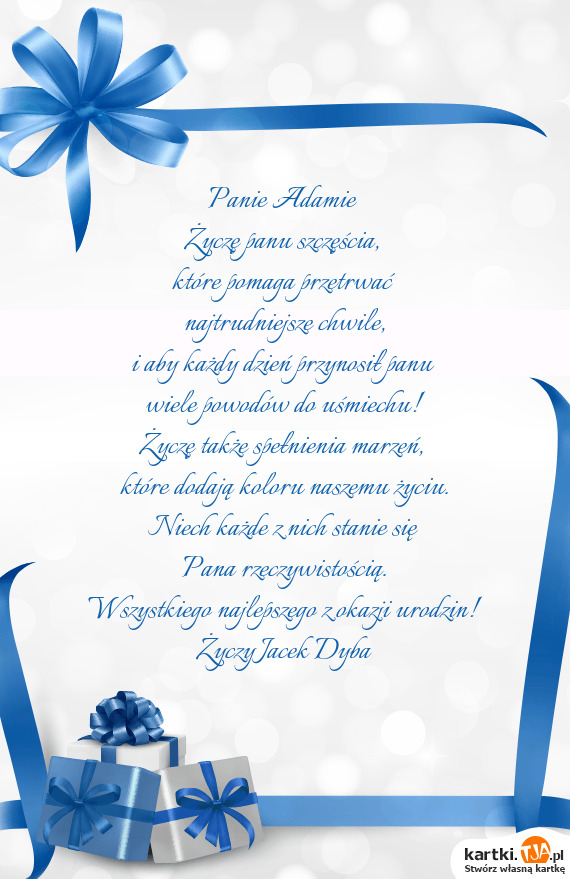 Panie Adamie
Życzę panu szczęścia,
które pomaga przetrwać
najtrudniejsze chwile,
i aby każdy dzień przynosił panu
wiele powodów do uśmiechu!
Życzę także spełnienia marzeń,
które dodają koloru naszemu życiu.
Niech każde z nich stanie się
Pana rzeczywistością.
Wszystkiego najlepszego z okazji urodzin!
Życzy Jacek Dyba
kartki.TJA.pl
Stwórz własną kartkę